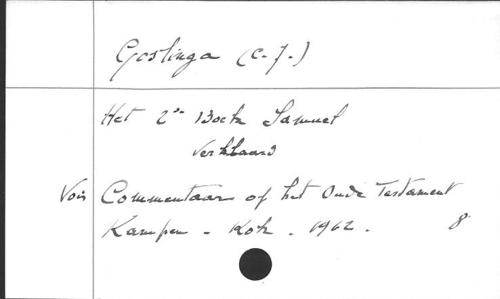 Goslinga (C.J.)
Het 2ᵈᵉ Boek Samuel
Verklaard
Voir Commentaar op het Oude Testament
Kampen - Kok - 1962. 8°